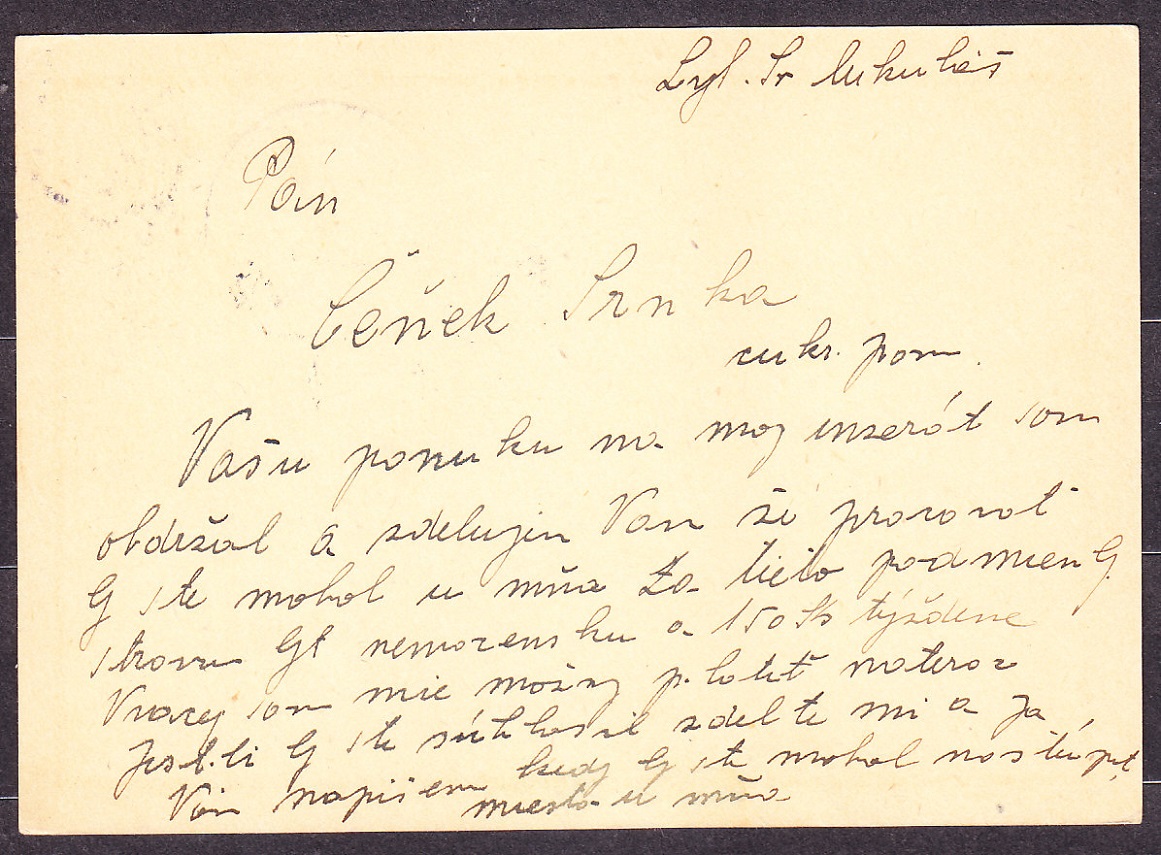 Lyt. Sv Mikuláš
Pán
Čeněk Srnka
cukr. pom.
Vašu ponuku na moj inzerát som
obdržal a zdelujem Vám že pracovať
by ste mohol u mňa za tieto podmien
stravu byt nemocensku a 150 Ks týždene
Viacej som nie možný platiť nateraz
Jestli by ste súhlasil zdelte mi a ja
Vám napíšem kedy by ste mohol nastúpit
miesto u mňa